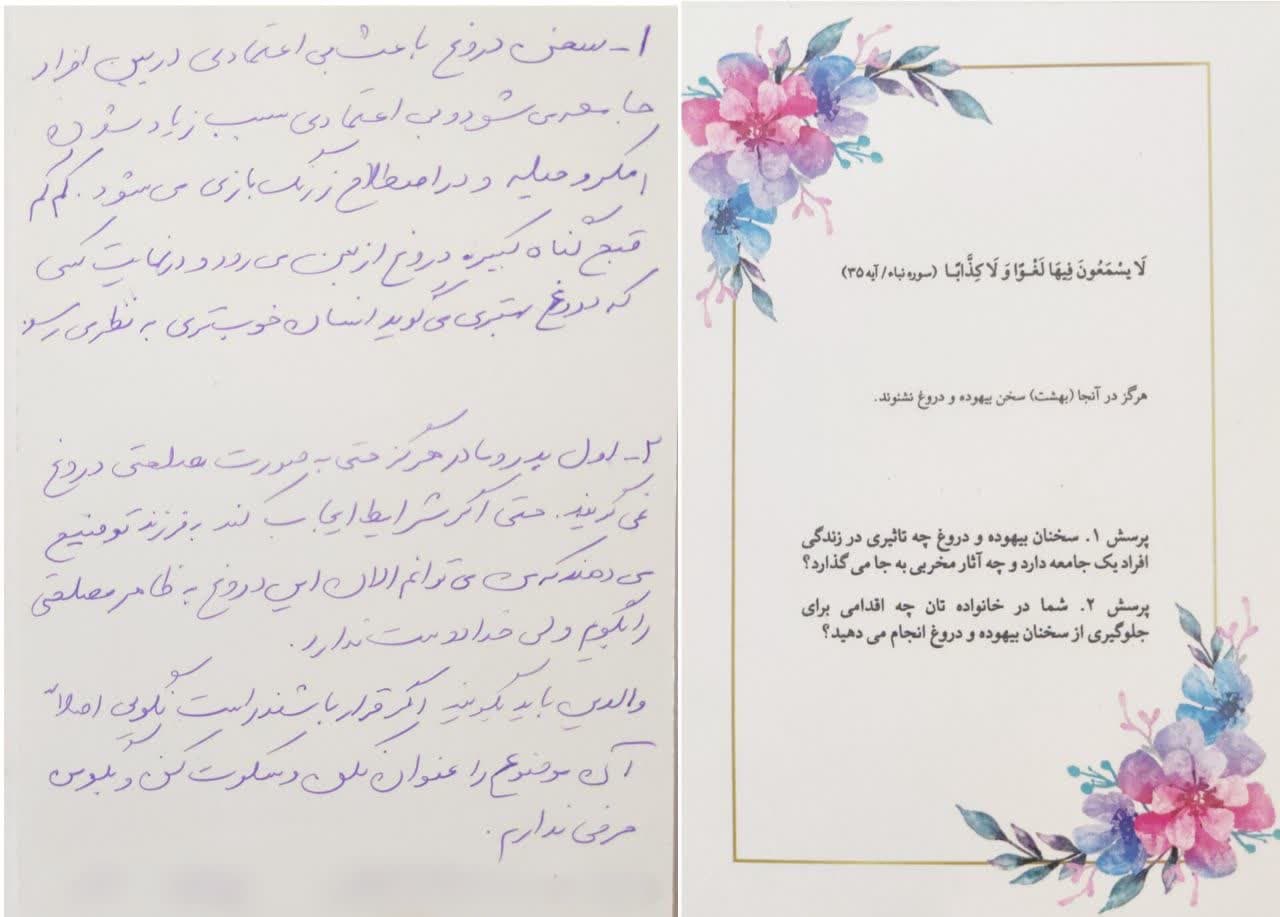 ۱- سخن دروغ باعث بی اعتمادی در بین افراد
جامعه می شود و بی اعتمادی سبب زیاد شدن
مکر و حیله و در اصطلاح زرنگ بازی می شود. کم کم
قبح گناه کبیره دروغ از بین می رود و در نهایت کسی
که دروغ بهتری می گوید انسان خوبتری به نظر می رسد.
۲- اول پدر و مادر هرگز حتی به صورت مصلحتی دروغ
نمی گویند. حتی اگر شرایط ایجاب کند به فرزند توضیح
می دهند که من می توانم الان این دروغ به ظاهر مصلحتی
را بگویم ولی خدا دوست ندارد.
والدین باید بگویند اگر قرار باشد راست نگویی اصلاً
آن موضوع را عنوان نکن و سکوت کن و بگو من
حرفی ندارم.
لَا يَسْمَعُونَ فِيهَا لَغْوًا وَ لَا كِذَّابًا (سوره نباء/ آیه ۳۵)
هرگز در آنجا (بهشت) سخن بیهوده و دروغ نشنوند.
پرسش ۱. سخنان بیهوده و دروغ چه تاثیری در زندگی
افراد یک جامعه دارد و چه آثار مخربی به جا می گذارد؟
پرسش ۲. شما در خانواده تان چه اقدامی برای
جلوگیری از سخنان بیهوده و دروغ انجام می دهید؟